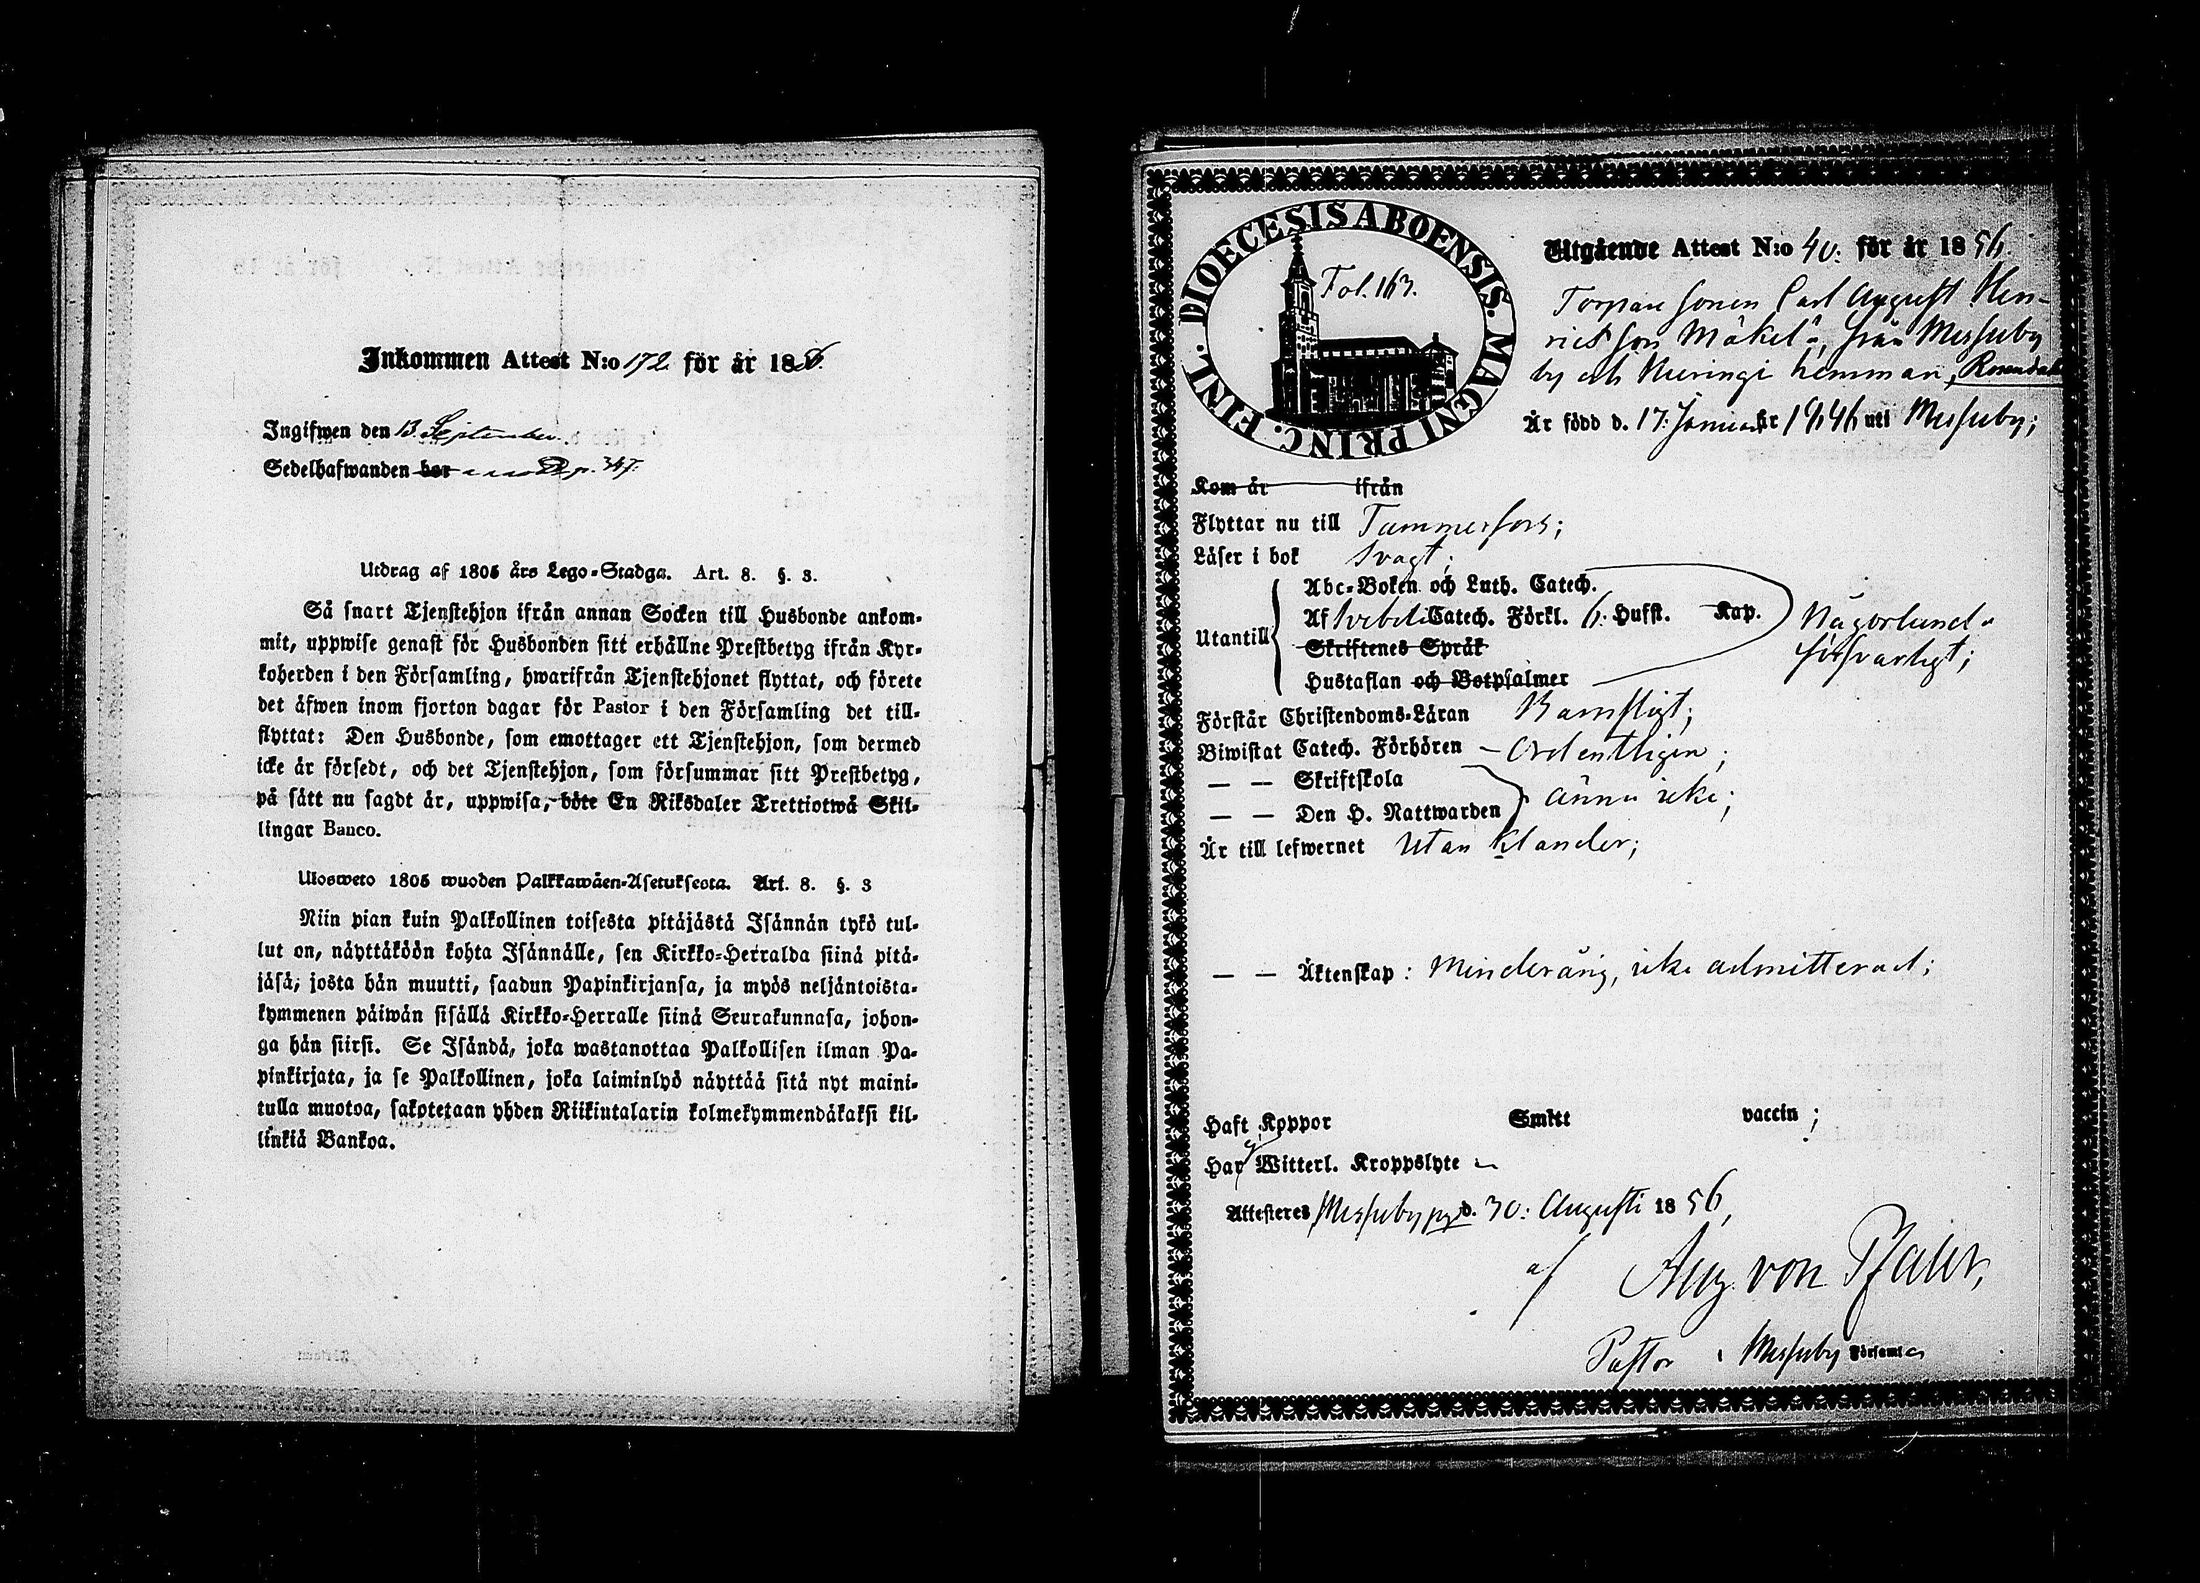 Inkommen Attest N:o 172 för år 1856.
Ingifwen den 13 September.
Sedelhafwanden bor p. 347.
Utdrag af 1805 års Lego-Stadga. Art. 8. §. 3.
Så snart Tjenstehjon ifrån annan Socken till Husbonde ankom-
mit, uppwise genast för Husbonden sitt erhållne Prestbetyg ifrån Kyr-
koherden i den Församling, hwarifrån Tjenstehjonet flyttat, och förete
det äfwen inom fjorton dagar för Pastor i den Församling det till-
flyttat: Den Husbonde, som emottager ett Tjenstehjon, som dermed
icke är försedt, och det Tjenstehjon, som försummar sitt Prestbetyg,
på sätt nu sagdt är, uppwisa, böte En Riksdaler Trettiotwå Skil-
lingar Banco.
Ulosweto 1805 wuoden Palkkawäen-Asetuksesta. Art. 8. §. 3
Niin pian kuin Palkollinen toisesta pitäjästä Isännän tykö tul-
lut on, näyttäköön kohta Isännälle, sen Kirkko-Herralda siinä pitä-
jäsä, josta hän muutti, saadun Papinkirjansa, ja myös neljäntoista-
kymmenen päiwän sisällä Kirkko-Herralle siinä Seurakunnasa, johon-
ga hän siirsi. Se Isändä, joka wastanottaa Palkollisen ilman Pa-
pinkirjata, ja se Palkollinen, joka laiminlyö näyttää sitä nyt maini-
tulla muotoa, sakotetaan yhden Riikintalarin kolmekymmendäkaksi kil-
linkiä Bankoa.
DIOECESIS ABOENSIS. MAGNI PRINC. FINL.
Fol. 163.
Utgående Attest N:o 40: för år 1856.
Torpare sonen Carl August Hen-
ricsson Mäkelä, från Messuby
by och hemman, Rosendahl
Är född d. 17: Januari år 1846 uti Messuby;
Kom år ifrån
Flyttar nu till Tammerfors;
Läser i bok Svagt;
Utantill
Abc-Boken och Luth. Catech.
Af Svebelii Catech. Förkl. 6. Hufst. Kap.
Skriftenes Språk
Hustaflan och Botpsalmer
Någorlunda
försvarligt;
Förstår Christendoms-Läran Barnsligt;
Biwistat Catech. Förhören – Ordentligen;
— — Skriftskola
— — Den H. Nattwarden
ännu icke;
Är till lefwernet Utan klander;
— — Äktenskap: Minderårig, icke admitterad;
Haft Koppor Smitt vaccin;
Har Witterl. Kroppslyte
Attesteres Messuby pg d. 30: Augusti 1856,
af Aug. von Pfaler,
Pastor i Messuby Församl